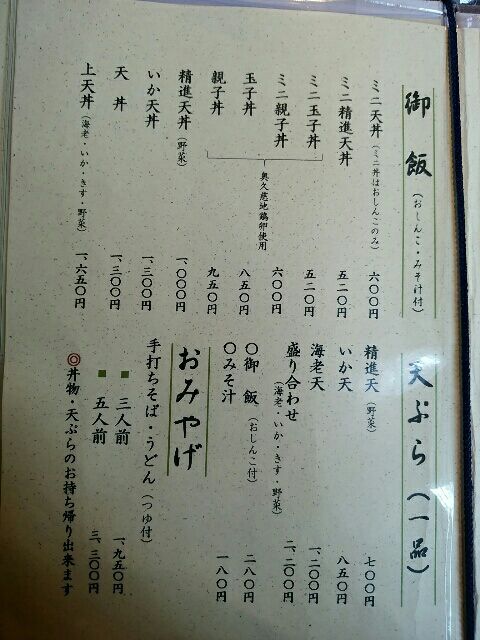 御飯（おしんこ・みそ汁付）
ミニ天丼（ミニ丼はおしんこのみ） 六〇〇円
ミニ精進天丼 五二〇円
ミニ玉子丼 五二〇円
ミニ親子丼 六〇〇円
玉子丼 八五〇円
親子丼 九五〇円
奥久慈地鶏卵使用
精進天丼（野菜） 一、〇〇〇円
いか天丼 一、三〇〇円
天丼 一、三〇〇円
上天丼（海老・いか・きす・野菜） 一、六五〇円
天ぷら（一品）
精進天（野菜） 七〇〇円
いか天 八五〇円
海老天 一、二〇〇円
盛り合わせ（海老・いか・きす・野菜） 二、二〇〇円
〇御飯（おしんこ付） 二八〇円
〇みそ汁 一八〇円
おみやげ
手打ちそば・うどん（つゆ付）
■ 三人前 一、九五〇円
■ 五人前 三、三〇〇円
◎丼物・天ぷらのお持ち帰り出来ます